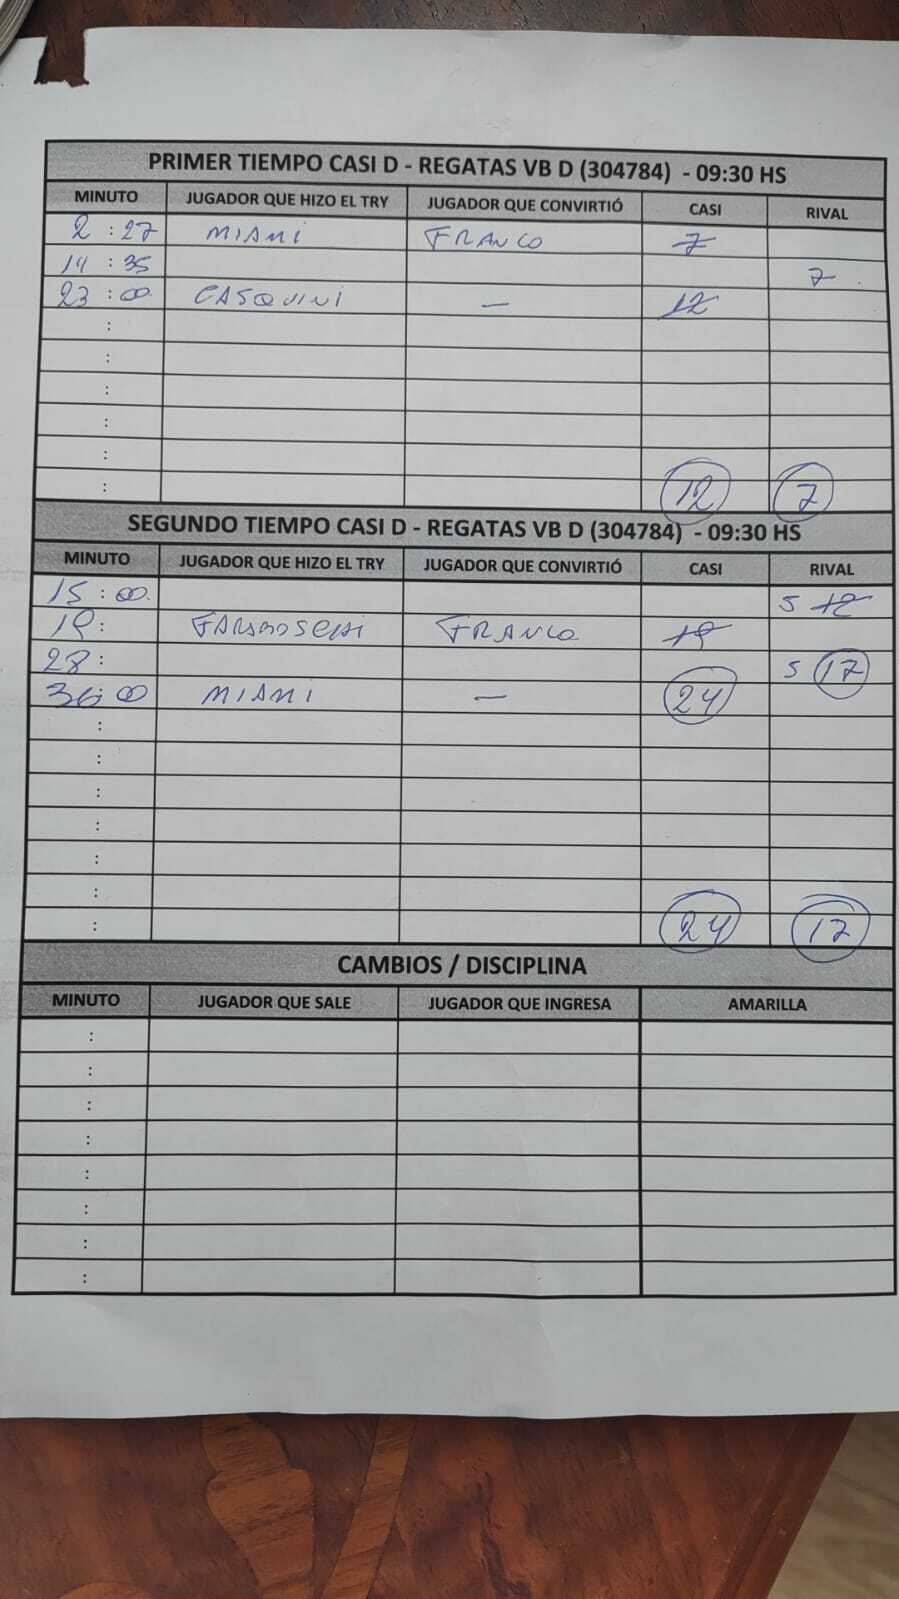 PRIMER TIEMPO CASI D - REGATAS VB D (304784) - 09:30 HS
MINUTO JUGADOR QUE HIZO EL TRY JUGADOR QUE CONVIRTIÓ CASI RIVAL
2 : 27 MIAMI FRANCO 7
14 : 35 7
23 : 00 CASQUINI — 12
:
:
:
:
:
: 12 7
SEGUNDO TIEMPO CASI D - REGATAS VB D (304784) - 09:30 HS
MINUTO JUGADOR QUE HIZO EL TRY JUGADOR QUE CONVIRTIÓ CASI RIVAL
15 : 00 5 12
19 : FRANCO 19
28 : 5 17
36 : 00 MIAMI — 24
:
:
:
:
:
:
: 24 17
CAMBIOS / DISCIPLINA
MINUTO JUGADOR QUE SALE JUGADOR QUE INGRESA AMARILLA
:
:
:
:
:
:
:
: